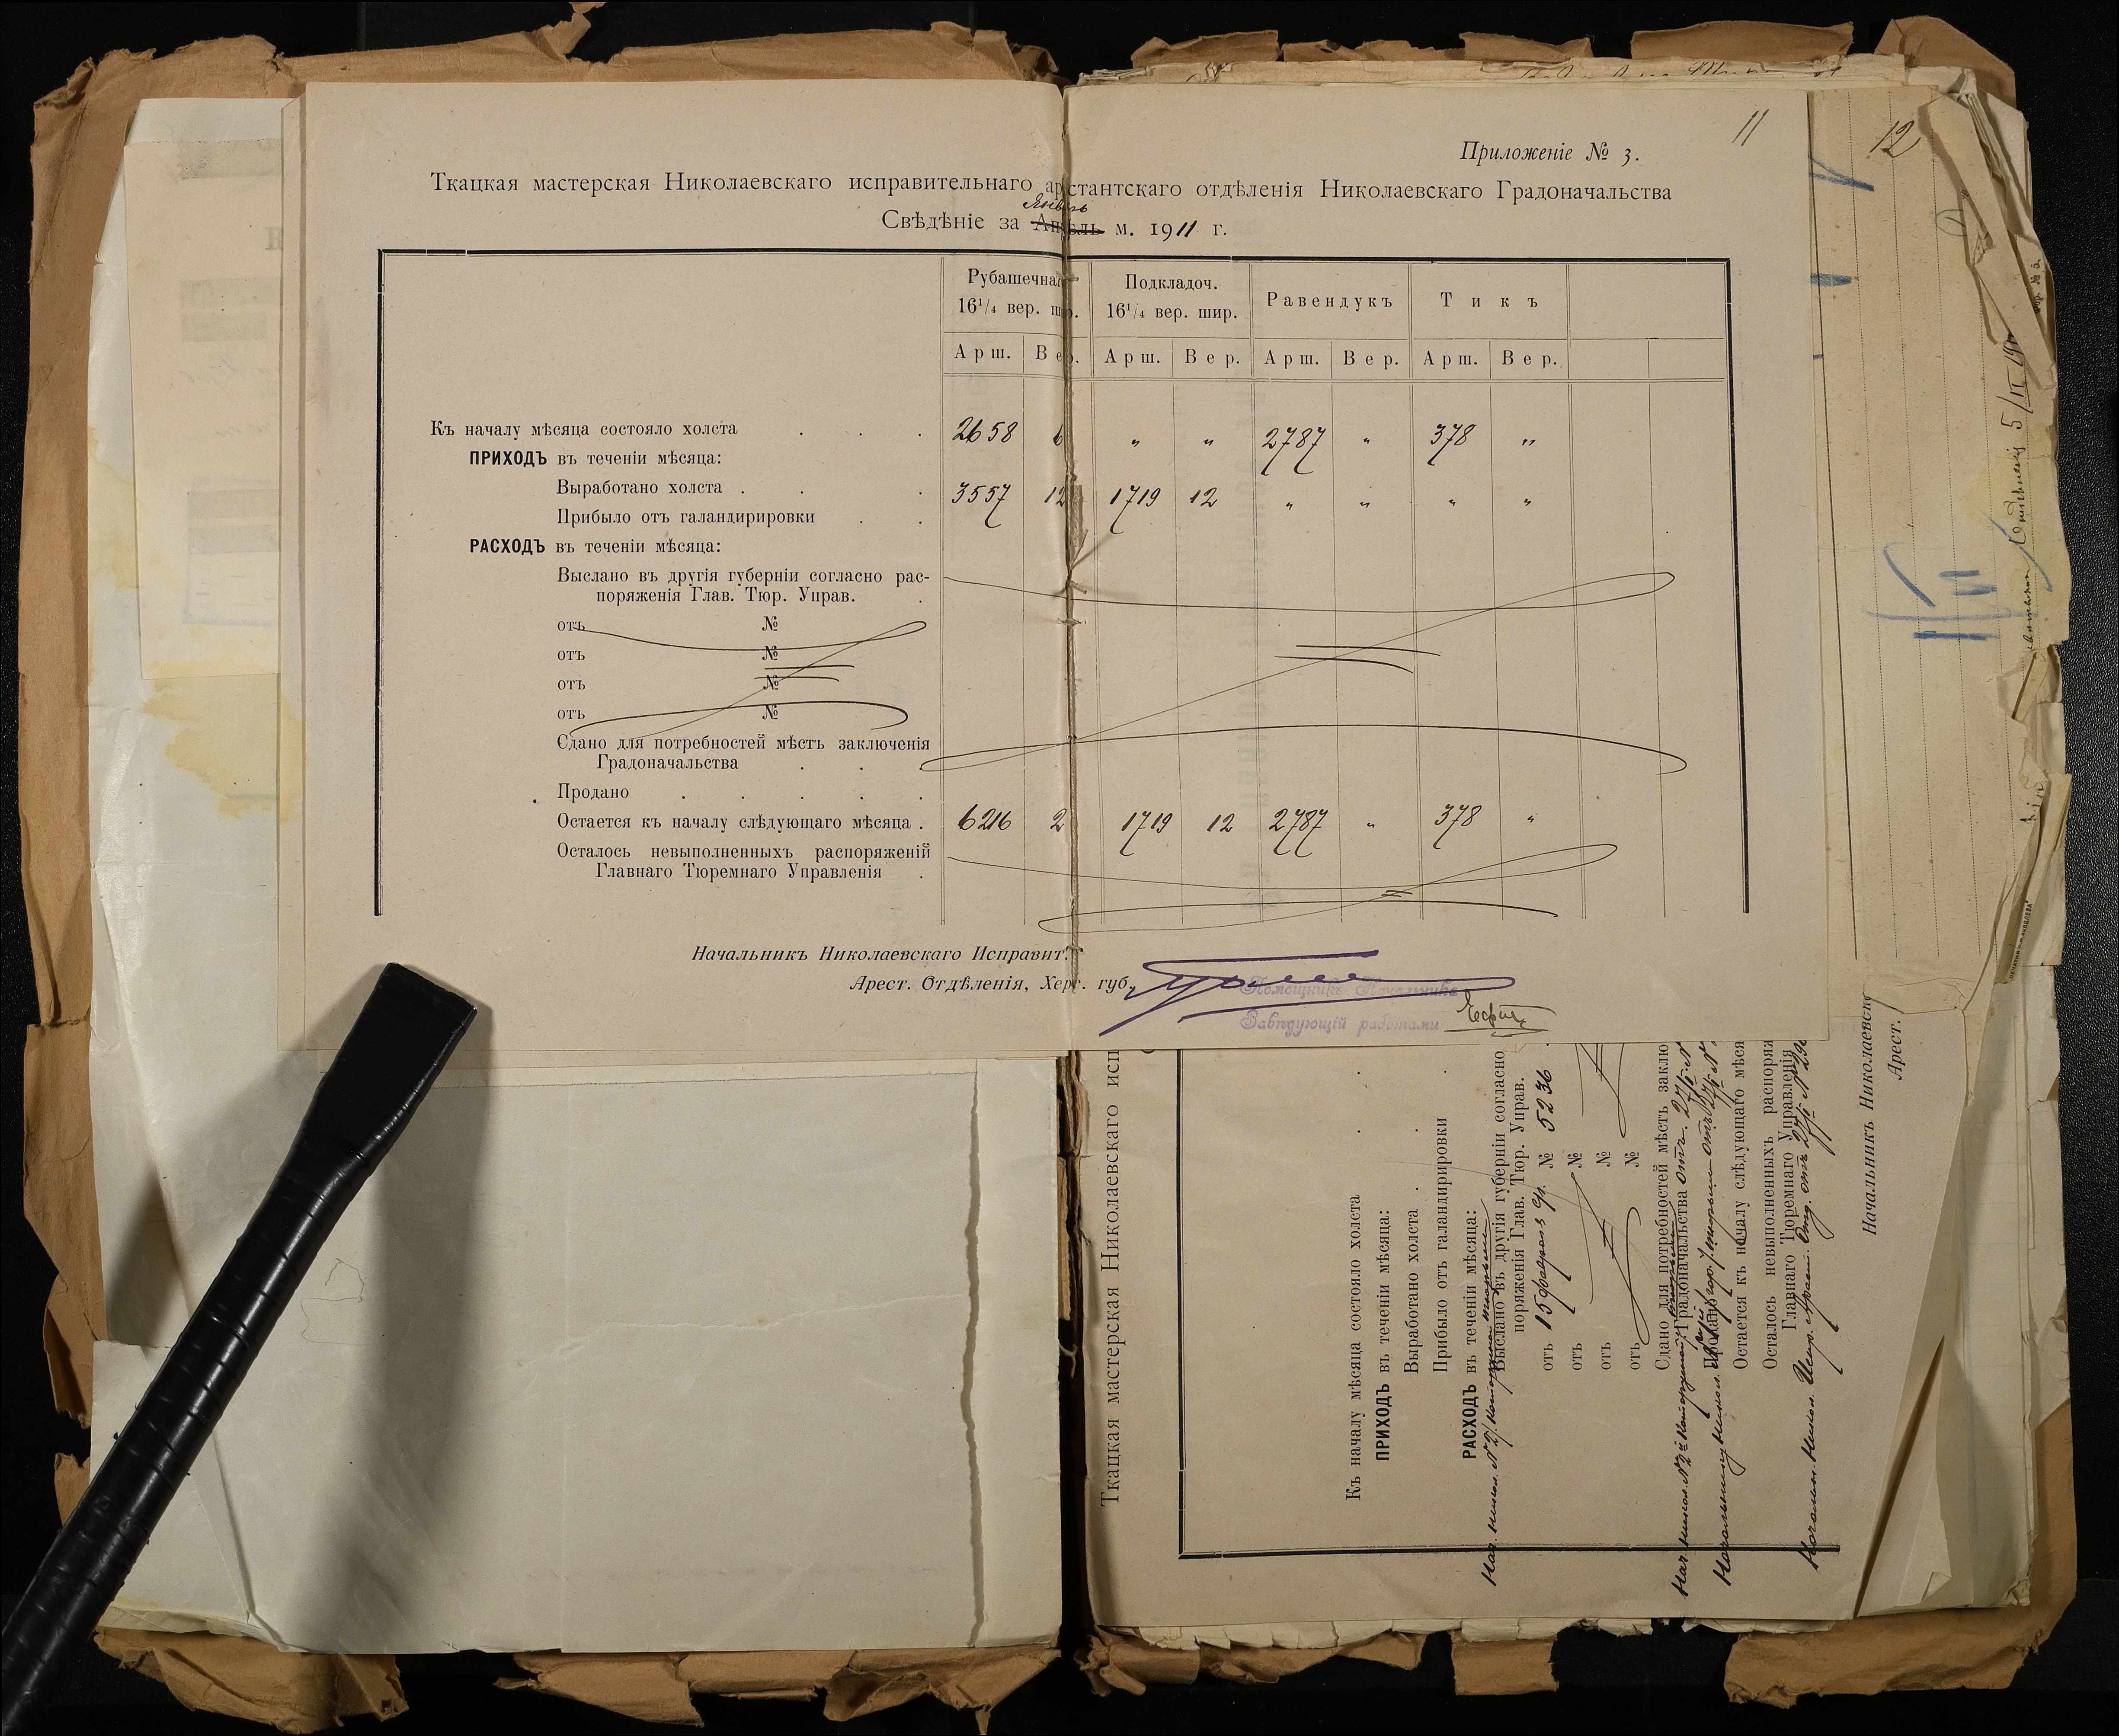 11
12
Приложеніе № 3.
Ткацкая мастерская Николаевскаго исправительнаго арестантскаго отдѣленія Николаевскаго Градоначальства
Январь
Свѣдѣніе за Апрѣль м. 1911 г.
Рубашечная Подкладоч. Равендукъ Тикъ
16¹/₄ вер. шир. 16¹/₄ вер. шир.
Арш. Вер. Арш. Вер. Арш. Вер. Арш. Вер.
Къ началу мѣсяца состояло холста . . . 2658 6 „ „ 2787 „ 378 „
ПРИХОДЪ въ теченіи мѣсяца:
Выработано холста . . . 3557 12 1719 12 „ „ „ „
Прибыло отъ галандирировки . .
РАСХОДЪ въ теченіи мѣсяца:
Выслано въ другія губерніи согласно рас-
поряженія Глав. Тюр. Управ. .
отъ №
отъ №
отъ №
отъ №
Сдано для потребностей мѣстъ заключенія
Градоначальства . . .
Продано . . . . .
Остается къ началу слѣдующаго мѣсяца . 6216 2 1719 12 2787 „ 378 „
Осталось невыполненныхъ распоряженій
Главнаго Тюремнаго Управленія .
Начальникъ Николаевскаго Исправит.
Арест. Отдѣленія, Херс. губ.
Помощникъ Начальника
Завѣдующій работами
Ткацкая мастерская Николаевскаго исп
Къ началу мѣсяца состояло холста . .
ПРИХОДЪ въ теченіи мѣсяца:
Выработано холста . .
Прибыло отъ галандирировки .
РАСХОДЪ въ теченіи мѣсяца:
Выслано въ другія губерніи согласно
поряженія Глав. Тюр. Управ.
отъ 15 февраля 9 № 5236
отъ №
отъ №
отъ №
Сдано для потребностей мѣстъ заклю
Градоначальства
Продано
Остается къ началу слѣдующаго мѣся
Осталось невыполненныхъ распоряж
Главнаго Тюремнаго Управленія
Начальникъ Николаевск
Арест.